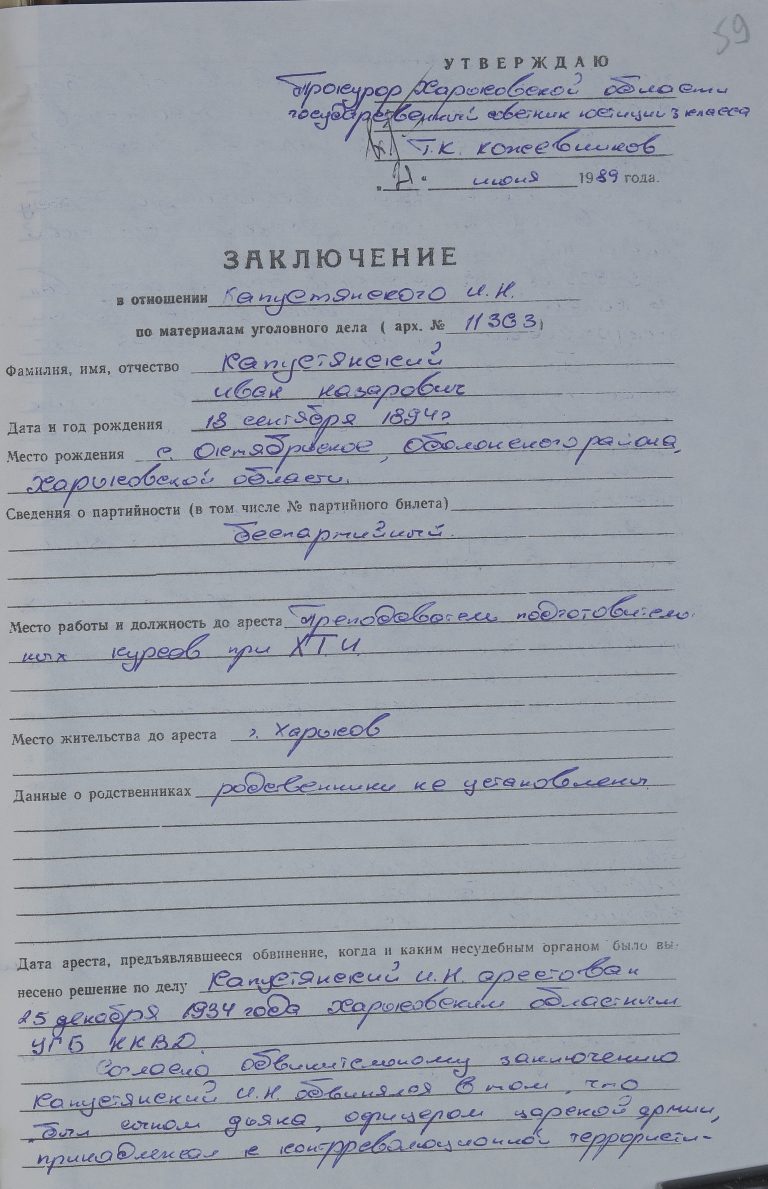 59
УТВЕРЖДАЮ
Прокурор Харьковской области
государственный советник юстиции 3 класса
Г.К. Кожевников
"21" июня 1989 года.
ЗАКЛЮЧЕНИЕ
в отношении Капустянского И.Н.
по материалам уголовного дела ( арх. № 11303)
Фамилия, имя, отчество Капустянский
Иван Назарович
Дата и год рождения 18 сентября 1894 г
Место рождения с. Октябрьское, Оболонского района,
Харьковской области.
Сведения о партийности (в том числе № партийного билета)
беспартийный.
Место работы и должность до ареста Преподаватель подготовитель-
ных курсов при ХТИ
Место жительства до ареста г. Харьков
Данные о родственниках родственники не установлены
Дата ареста, предъявлявшееся обвинение, когда и каким несудебным органом было вы-
несено решение по делу Капустянский И.Н. арестован
25 декабря 1934 года Харьковским областным
УГБ НКВД.
Согласно обвинительному заключению
Капустянский И.Н. обвинялся в том, что
был сыном дьяка, офицером царской армии,
принадлежал к контрреволюционной террористи-